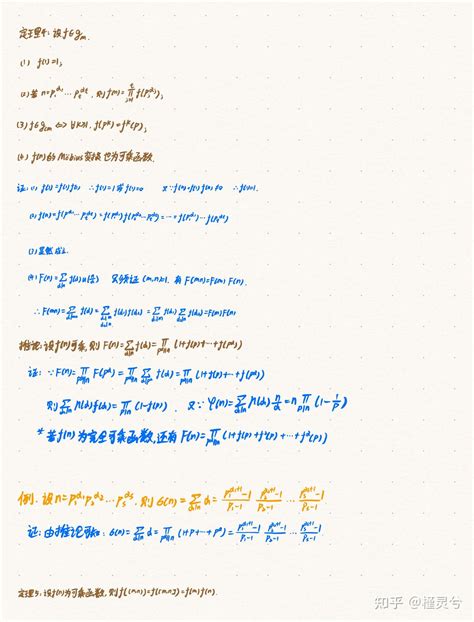 定理4: 设 f∈g_m.
(1) f(1)=1;
(2) 若 n=p_1^{α_1}⋯p_t^{α_t}, 则 f(n)=∏_{i=1}^{t} f(p_i^{α_i});
(3) f∈g_{cm} ⟺ ∀k≥1, f(p^k)=f^k(p);
(4) f(n)的Möbius变换也为可乘函数.
证: (1) f(1)=f(1)f(1), ∴f(1)=1或f(1)=0
(2) f(n)=f(p_1^{α_1}⋯p_t^{α_t})=f(p_1^{α_1})f(p_2^{α_2}⋯p_t^{α_t})=⋯=f(p_1^{α_1})⋯f(p_t^{α_t})
(3) 显然成立.
(4) F(n)=∑_{d|n} f(d)u(n/d) 只须证 (m,n)=1, 有 F(mn)=F(m)F(n).
∴F(mn)=∑_{d|mn} f(d)=∑ f(d_1)f(d_2)=∑ f(d_1)∑ f(d_2)=F(m)F(n)
推论: 设f(n)可乘, 则 F(n)=∑_{d|n} f(d)=∏_{p^α||n} (1+f(p)+⋯+f(p^α))
证: ∵F(n)=∏_{p^α||n} F(p^α)=∏_{p^α||n} ∑ f(d)=∏_{p^α||n} (1+f(p)+⋯+f(p^α))
则 ∑_{d|n} μ(d)f(d)=∏_{p|n} (1-f(p)). 又∵φ(n)=∑_{d|n} μ(d) n/d = n∏_{p|n} (1-1/p)
* 若f(n)为完全可乘函数, 还有 F(n)=∏_{p^α||n} (1+f(p)+f²(p)+⋯+f^α(p))
例. 设 n=p_1^{α_1}p_2^{α_2}⋯p_s^{α_s}, 则 σ(n)=∑_{d|n} d = (p_1^{α_1+1}-1)/(p_1-1) (p_2^{α_2+1}-1)/(p_2-1) ⋯ (p_s^{α_s+1}-1)/(p_s-1)
证: 由推论可知: σ(n)=∑_{d|n} d=∏_{p^α||n} (1+p+⋯+p^α)=(p_1^{α_1+1}-1)/(p_1-1) (p_2^{α_2+1}-1)/(p_2-1) ⋯ (p_s^{α_s+1}-1)/(p_s-1)
定理5: 设f(n)为可乘函数, 则 f([m,n])f((m,n))=f(m)f(n).
知乎 @槿灵兮